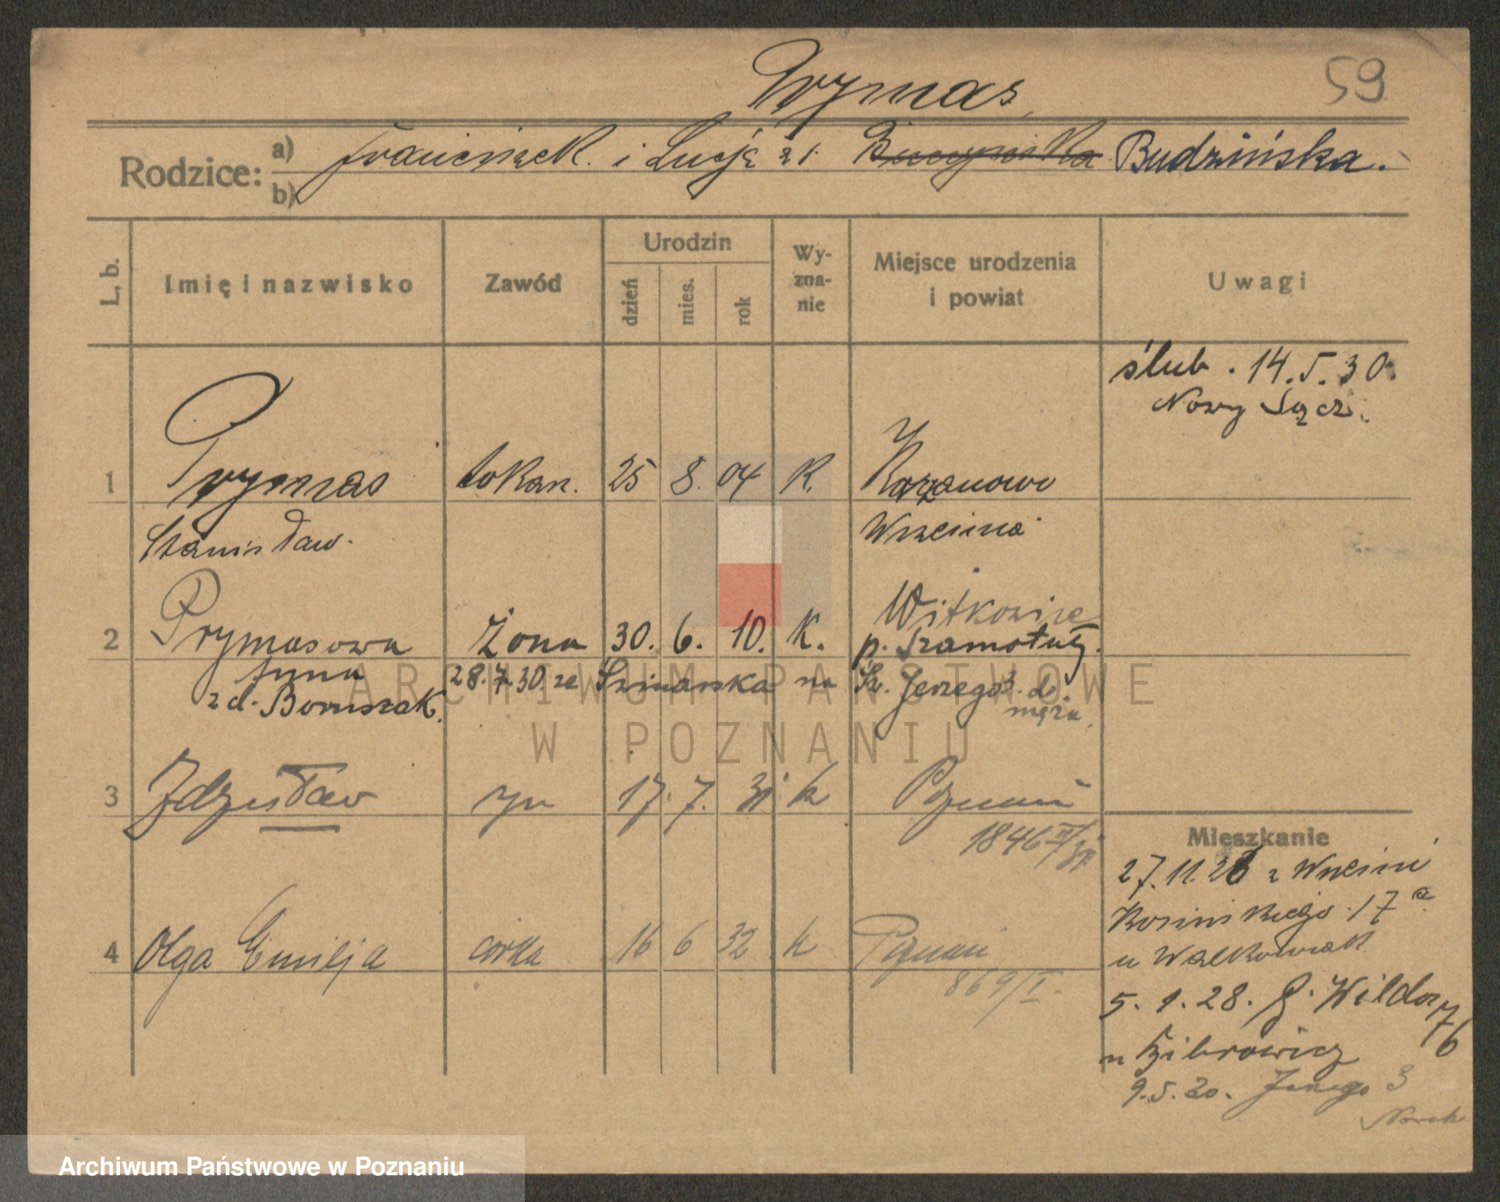 Prymas
59
Rodzice: a) Franciszek i Łucja z d. Budzińska.
b)
L. b.
Imię i nazwisko
Zawód
Urodzin
dzień
mies.
rok
Wy-
zna-
nie
Miejsce urodzenia
i powiat
Uwagi
ślub. 14.5.30.
Nowy Sącz.
1 Prymas tokarz. 25 8. 04 K.
Stanisław.
Września
2 Prymasowa Żona 30. 6. 10. K. Witkowice
p. Szamotuły.
z d. Boruszak.
28.7.30. ze Szmarska na Św. Jerzego 3. do
męża.
3 Zdzisław syn 17. 7. 31 k Poznań
1846
4 Olga Emilja córka 16 6 32 k Poznań
869/I.
Mieszkanie
27.11.26 z Wrześni
Kosińskiego 17a
u Walkowiak
5. 1. 28. G. Wilda 76
u
9.5.30. Jerzego 3
ARCHIWUM PAŃSTWOWE
W POZNANIU
Archiwum Państwowe w Poznaniu